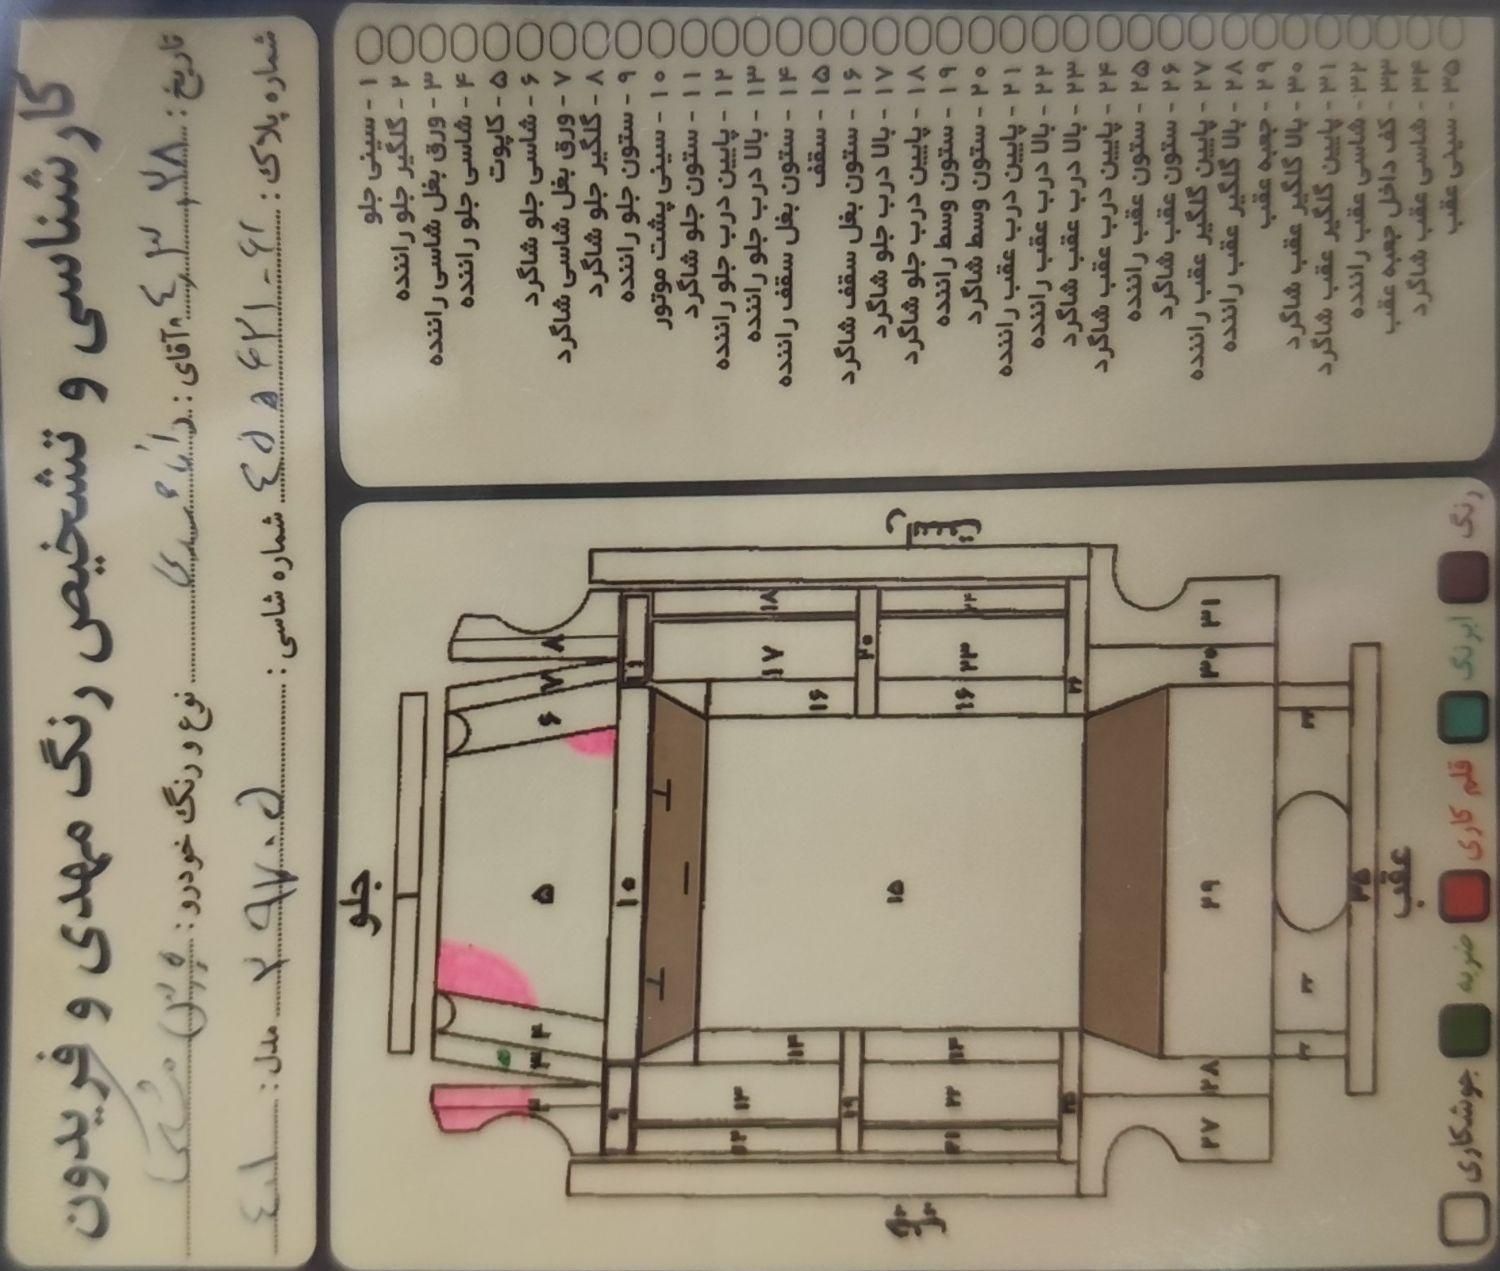 کارشناسی و تشخیص رنگ مهدی و فریدون
تاریخ: آقای: نوع و رنگ خودرو:
شماره پلاک: شماره شاسی: مدل:
۱ - سینی جلو
۲ - گلگیر جلو راننده
۳ - ورق بغل شاسی راننده
۴ - شاسی جلو راننده
۵ - کاپوت
۶ - شاسی جلو شاگرد
۷ - ورق بغل شاسی شاگرد
۸ - گلگیر جلو شاگرد
۹ - ستون جلو راننده
۱۰ - سینی پشت موتور
۱۱ - ستون جلو شاگرد
۱۲ - پایین درب جلو راننده
۱۳ - بالا درب جلو راننده
۱۴ - ستون بغل سقف راننده
۱۵ - سقف
۱۶ - ستون بغل سقف شاگرد
۱۷ - بالا درب جلو شاگرد
۱۸ - پایین درب جلو شاگرد
۱۹ - ستون وسط راننده
۲۰ - ستون وسط شاگرد
۲۱ - پایین درب عقب راننده
۲۲ - بالا درب عقب راننده
۲۳ - بالا درب عقب شاگرد
۲۴ - پایین درب عقب شاگرد
۲۵ - ستون عقب راننده
۲۶ - ستون عقب شاگرد
۲۷ - پایین گلگیر عقب راننده
۲۸ - بالا گلگیر عقب راننده
۲۹ - جعبه عقب
۳۰ - بالا گلگیر عقب شاگرد
۳۱ - پایین گلگیر عقب شاگرد
۳۲ - شاسی عقب راننده
۳۳ - کف داخل جعبه عقب
۳۴ - شاسی عقب شاگرد
۳۵ - سینی عقب
جلو
۸
۷
۶
۵
۴
۳
۲
۱۱
۱۰
۹
۱۸
۱۷
۱۶
۱۵
۱۴
۱۳
۱۲
۲۰
۱۹
۲۴
۲۳
۱۶
۱۴
۲۲
۲۱
۲۶
۲۵
۳۱
۳۰
۲۹
۲۸
۲۷
۳۵
عقب
جوشکاری
ضربه
قلم کاری
ابرنگ
رنگ